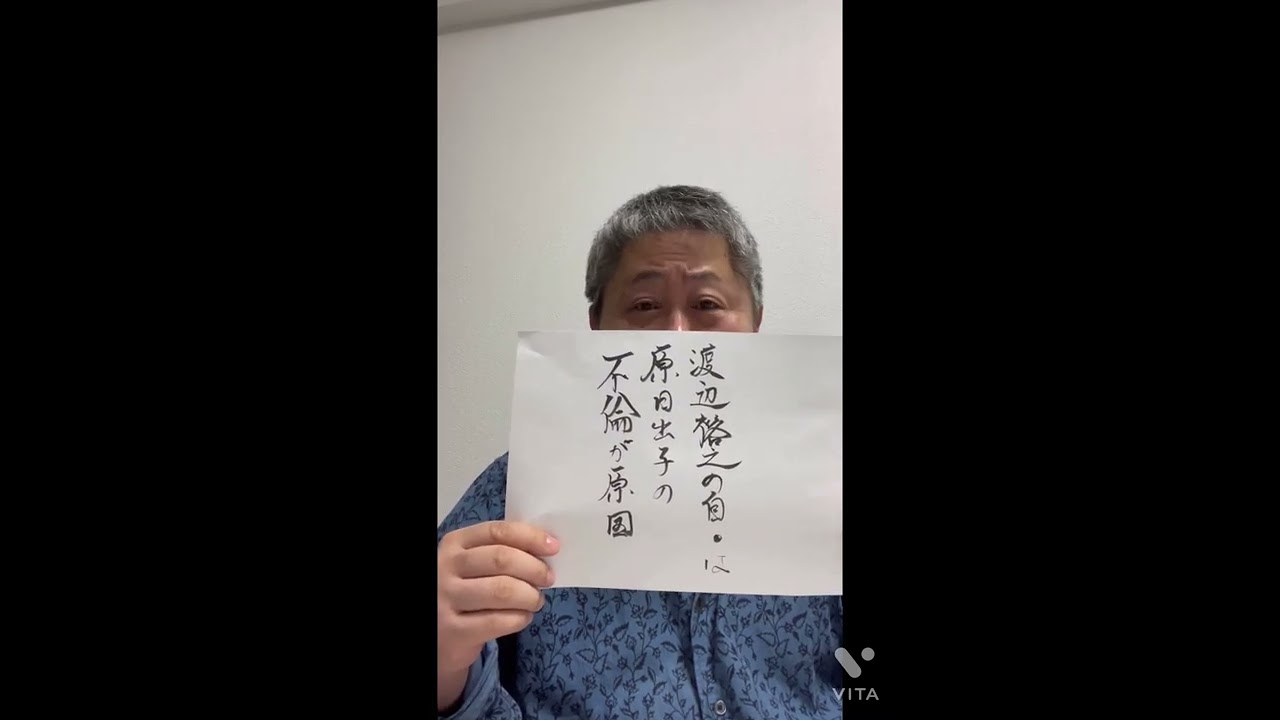 渡辺裕之の自•は
原日出子の
不倫が原因
VITA